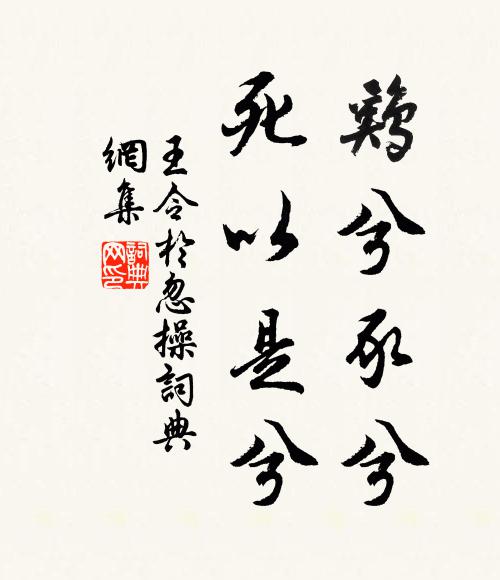 鷄兮豕兮
死以是兮
王令於忽操詞典
網集
詞典網印